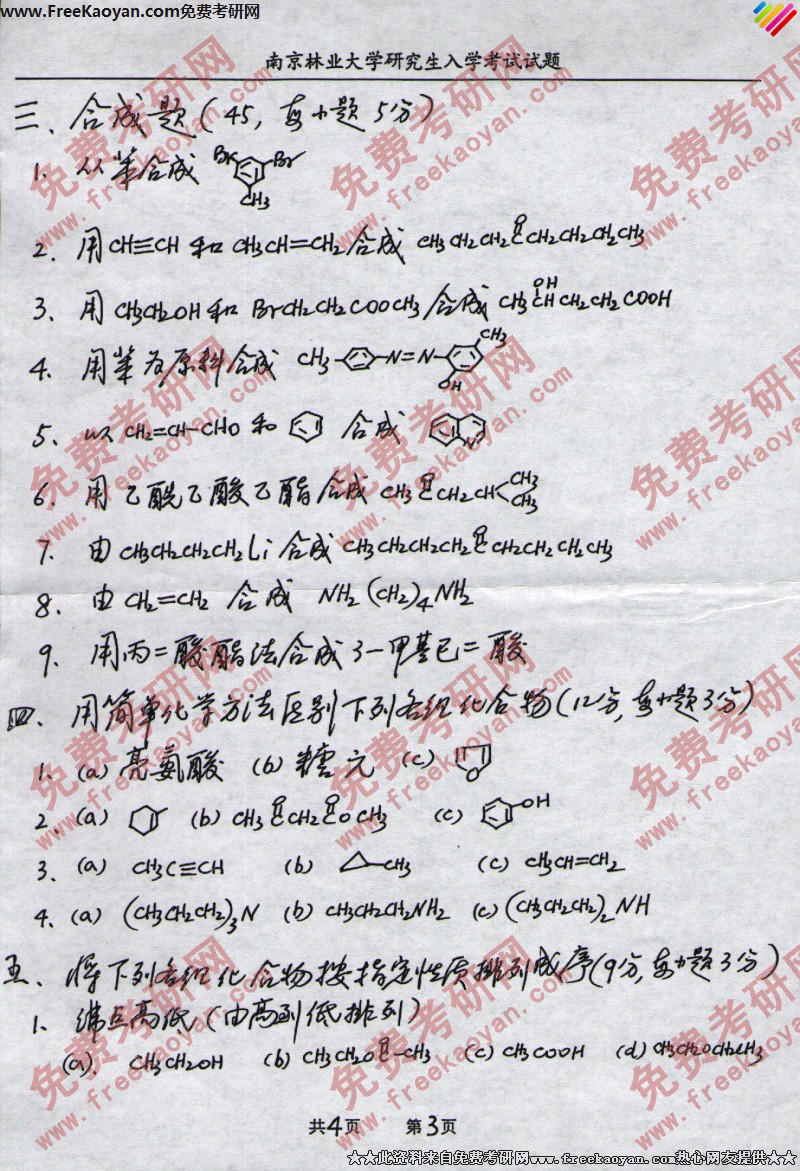 www.FreeKaoyan.com免费考研网
南京林业大学研究生入学考试试题
三、合成题(45,每小题5分)
1. 从苯合成 Br Br CH3
2. 用CH≡CH和CH3CH=CH2合成 CH3CH2CH2CCH2CH2CH2CH3 O
3. 用CH3CH2OH和BrCH2CH2COOCH3合成CH3CHCH2CH2COOH OH
4. 用苯为原料合成 CH3-N=N- CH3 OH
5. 以CH2=CH-CHO和 合成 N
6. 用乙酰乙酸乙酯合成CH3CCH2CH CH3 CH3 O
7. 由CH3CH2CH2CH2Li合成CH3CH2CH2CH2CCH2CH2CH2CH3 O
8. 由CH2=CH2合成 NH2(CH2)4NH2
9. 用丙二酸酯法合成3-甲基己二酸
四、用简单化学方法区别下列各组化合物(12分,每小题3分)
1. (a) 亮氨酸 (b) 糖元 (c) O
2. (a) (b) CH3CCH2COCH3 O O (c) OH
3. (a) CH3C≡CH (b) CH3 (c) CH3CH=CH2
4. (a) (CH3CH2CH2)3N (b) CH3CH2CH2NH2 (c) (CH3CH2CH2)2NH
五、将下列各组化合物按指定性质排列成序(9分,每小题3分)
1. 沸点高低(由高到低排列)
(a) CH3CH2OH (b) CH3CH2OC-CH3 O (c) CH3COOH (d) CH3CH2OCH2CH3
共4页 第3页
★★此资料来自免费考研网www.freekaoyan.com热心网友提供★★
免费考研网
www.freekaoyan.com